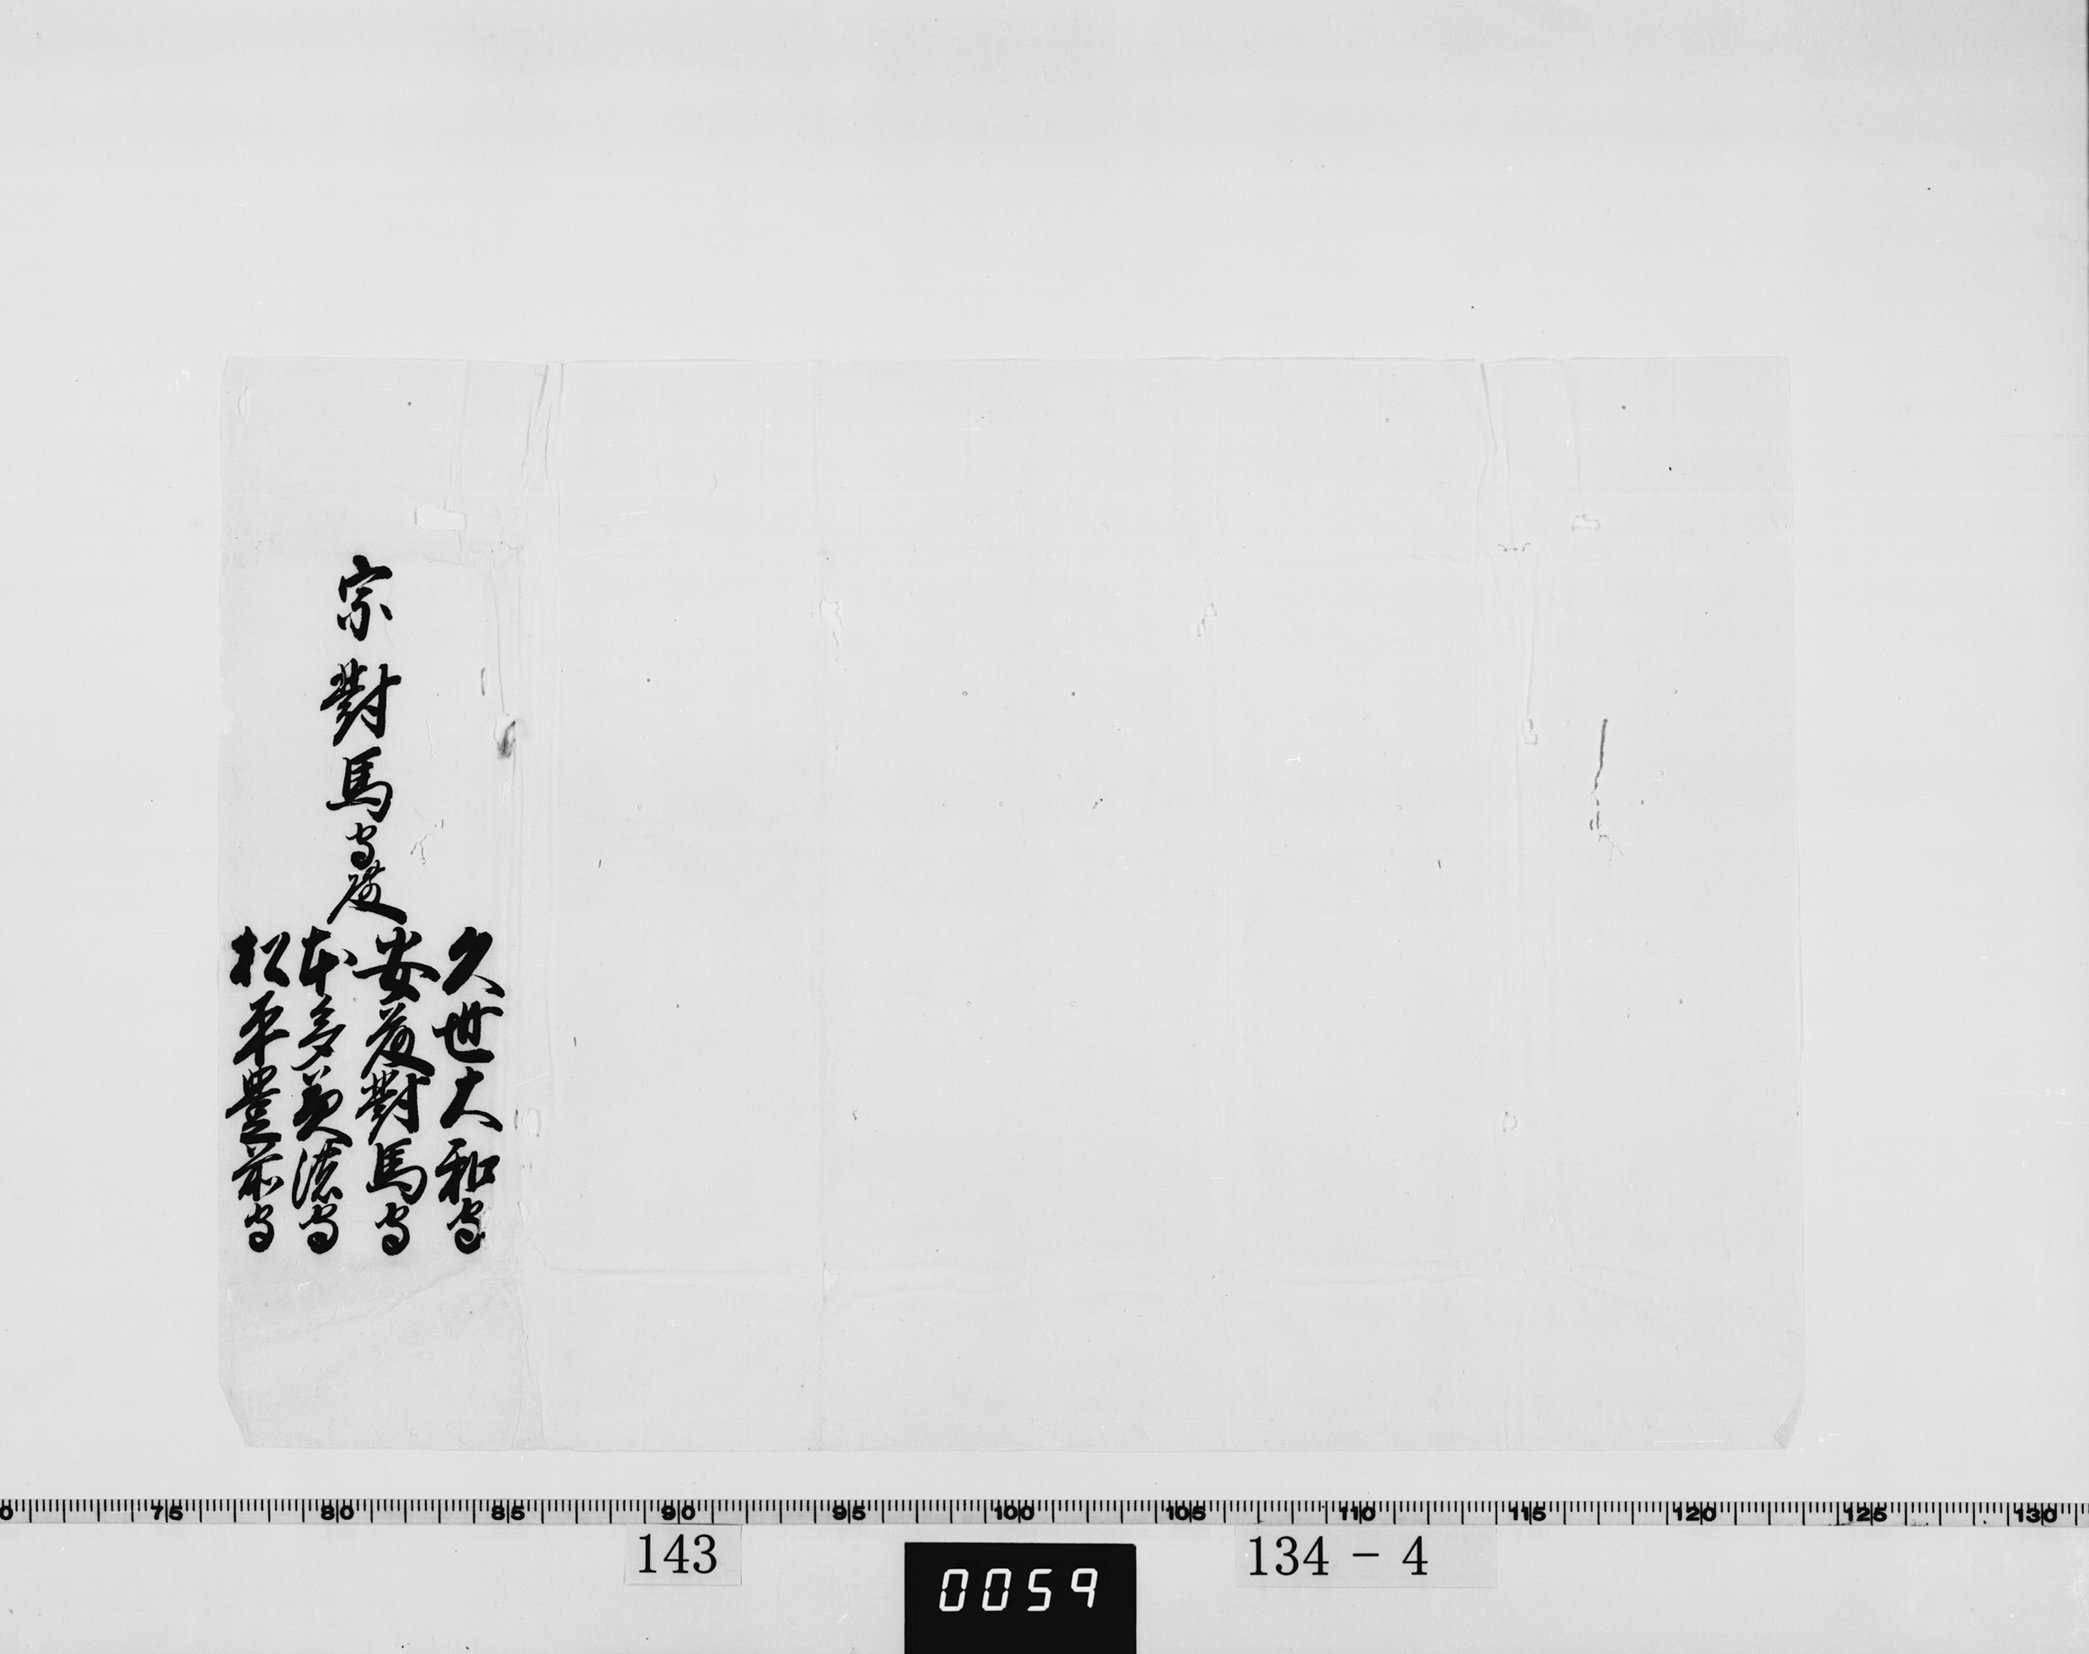 久世大和守
安藤對馬守
本多美濃守
松平豊前守
宗對馬守殿
75 80 85 90 95 100 105 110 115 120 125 130
143
134 - 4
0059